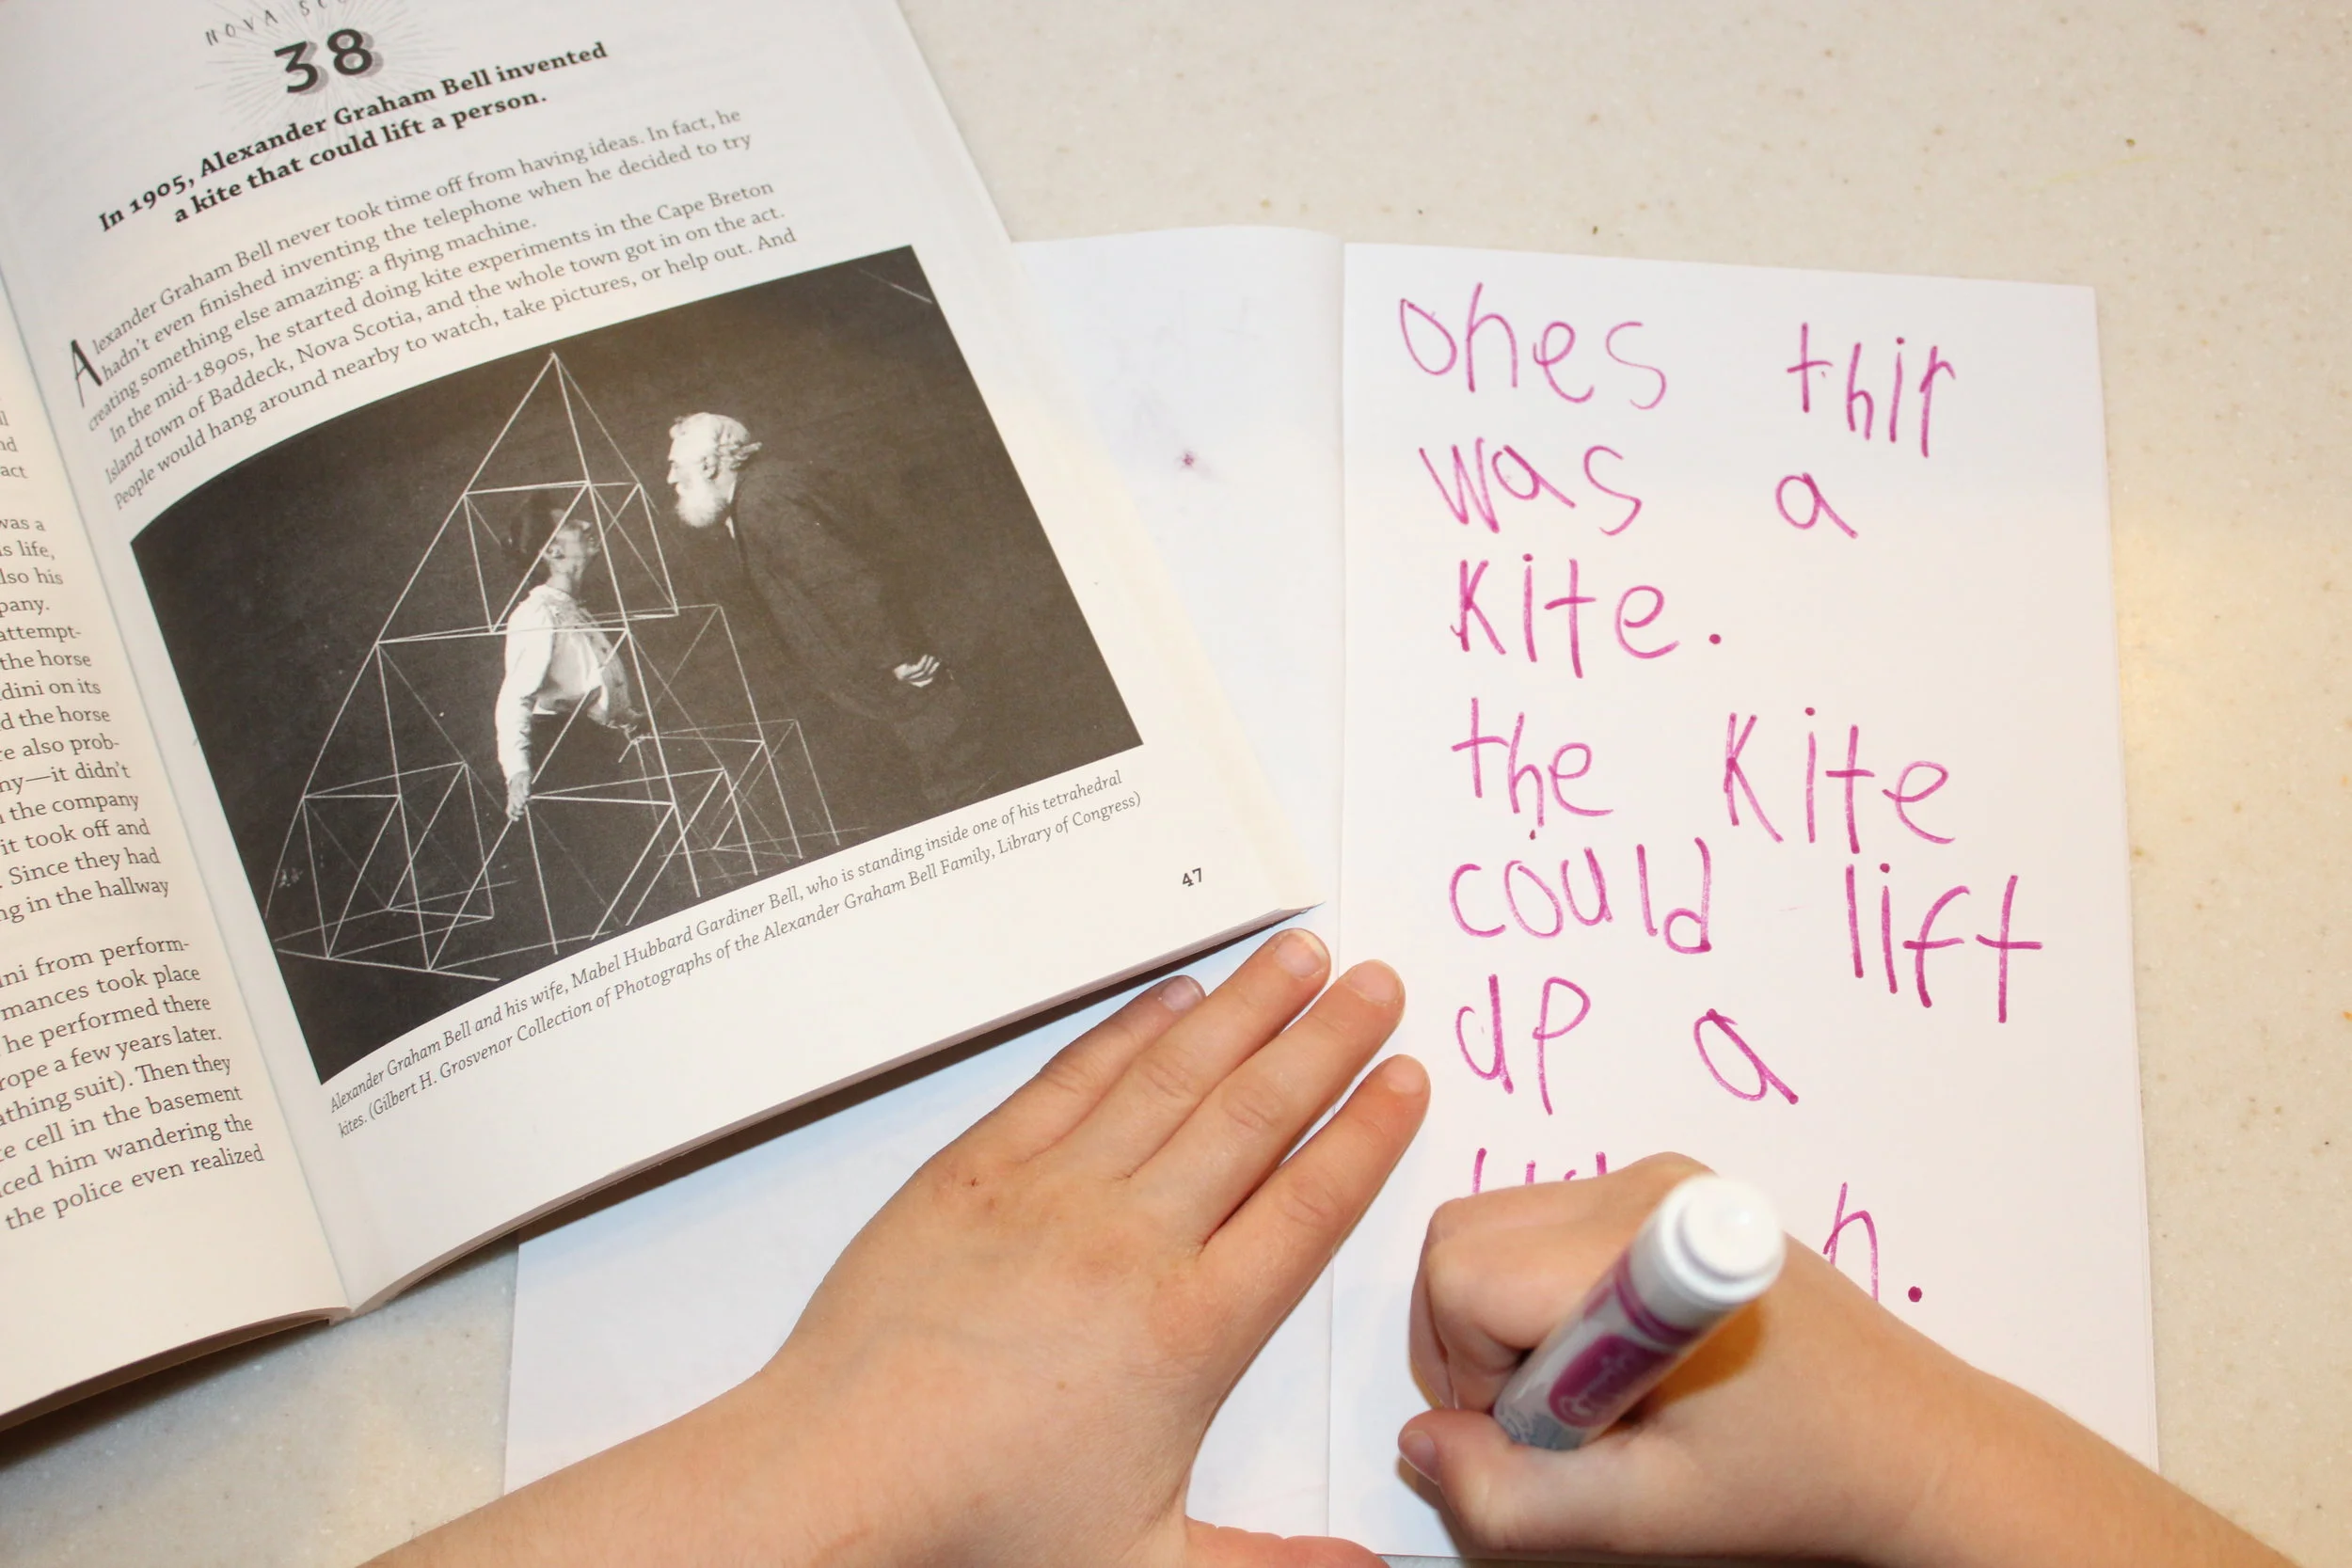 38
In 1905, Alexander Graham Bell invented
a kite that could lift a person.
Alexander Graham Bell never took time off from having ideas. In fact, he
hadn't even finished inventing the telephone when he decided to try
creating something else amazing: a flying machine.
In the mid-1890s, he started doing kite experiments in the Cape Breton
Island town of Baddeck, Nova Scotia, and the whole town got in on the act.
People would hang around nearby to watch, take pictures, or help out. And
Alexander Graham Bell and his wife, Mabel Hubbard Gardiner Bell, who is standing inside one of his tetrahedral
kites. (Gilbert H. Grosvenor Collection of Photographs of the Alexander Graham Bell Family, Library of Congress)
47
was a
life,
his
attempt-
the horse
on its
the horse
also prob-
it didn't
the company
it took off and
. Since they had
in the hallway
from perform-
took place
he performed there
a few years later.
suit). Then they
cell in the basement
him wandering the
the police even realized
ones thir
was a
Kite.
the Kite
could lift
up a